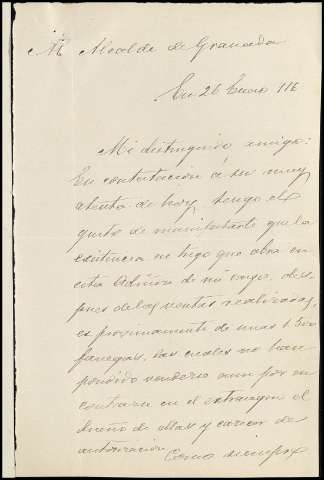 Alcalde de Granada
En 26 Enero 916
Mi distinguido amigo:
En contestación á su muy
atenta de hoy, tengo el
gusto de manifestarle que la
existencia de trigo que obra en
esta Admón de mi cargo, des-
pues de las ventas realizadas,
es proximamente de unas
fanegas, las cuales no han
podido venderse aun por en
contrarse en el extrangero el
dueño de ellas y carecer de
autorización. Como siempre